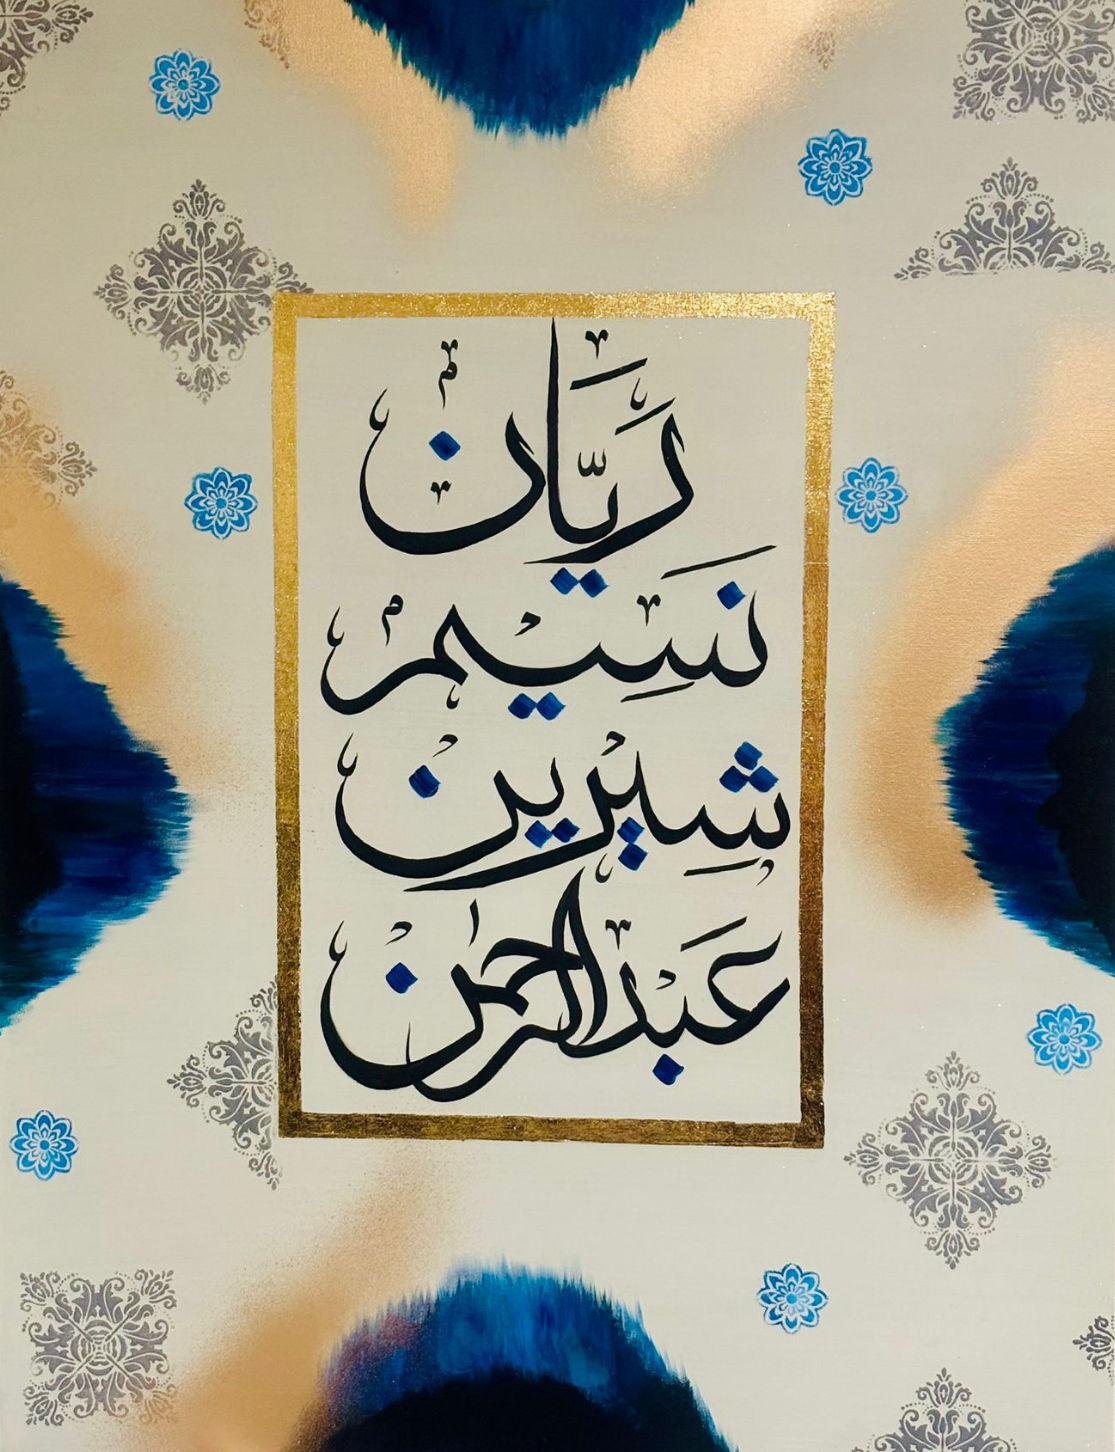 رَيَّان
نَسِيم
شِيرين
عَبْدالرحمٰن